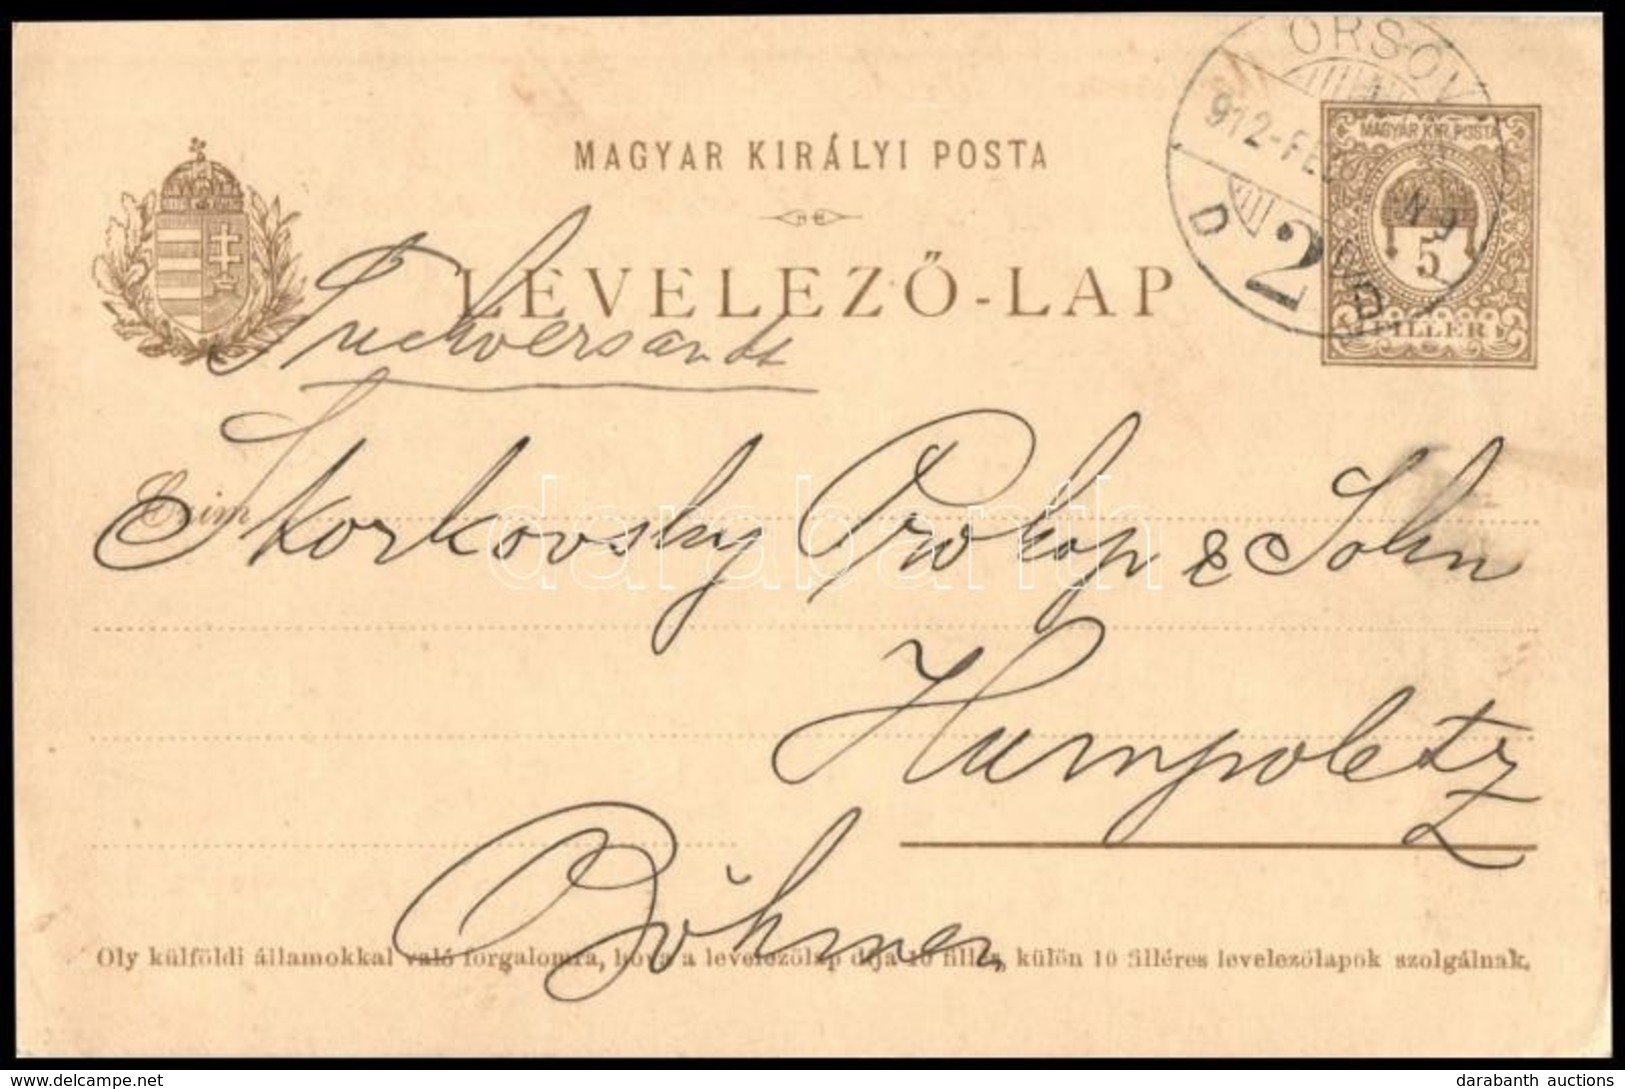 ORSOV
912-FEB
D
2
MAGYAR KIR. POSTA
5
FILLÉR
MAGYAR KIRÁLYI POSTA
LEVELEZŐ-LAP
Tuchversandt
Czim
Skorkovsky Prokop & Sohn
Humpoletz
Böhmen
Oly külföldi államokkal való forgalomra, hova a levelezőlap díja 10 fillér, külön 10 filléres levelezőlapok szolgálnak.
darabanth
darabanth auctions
https://www.delcampe.net